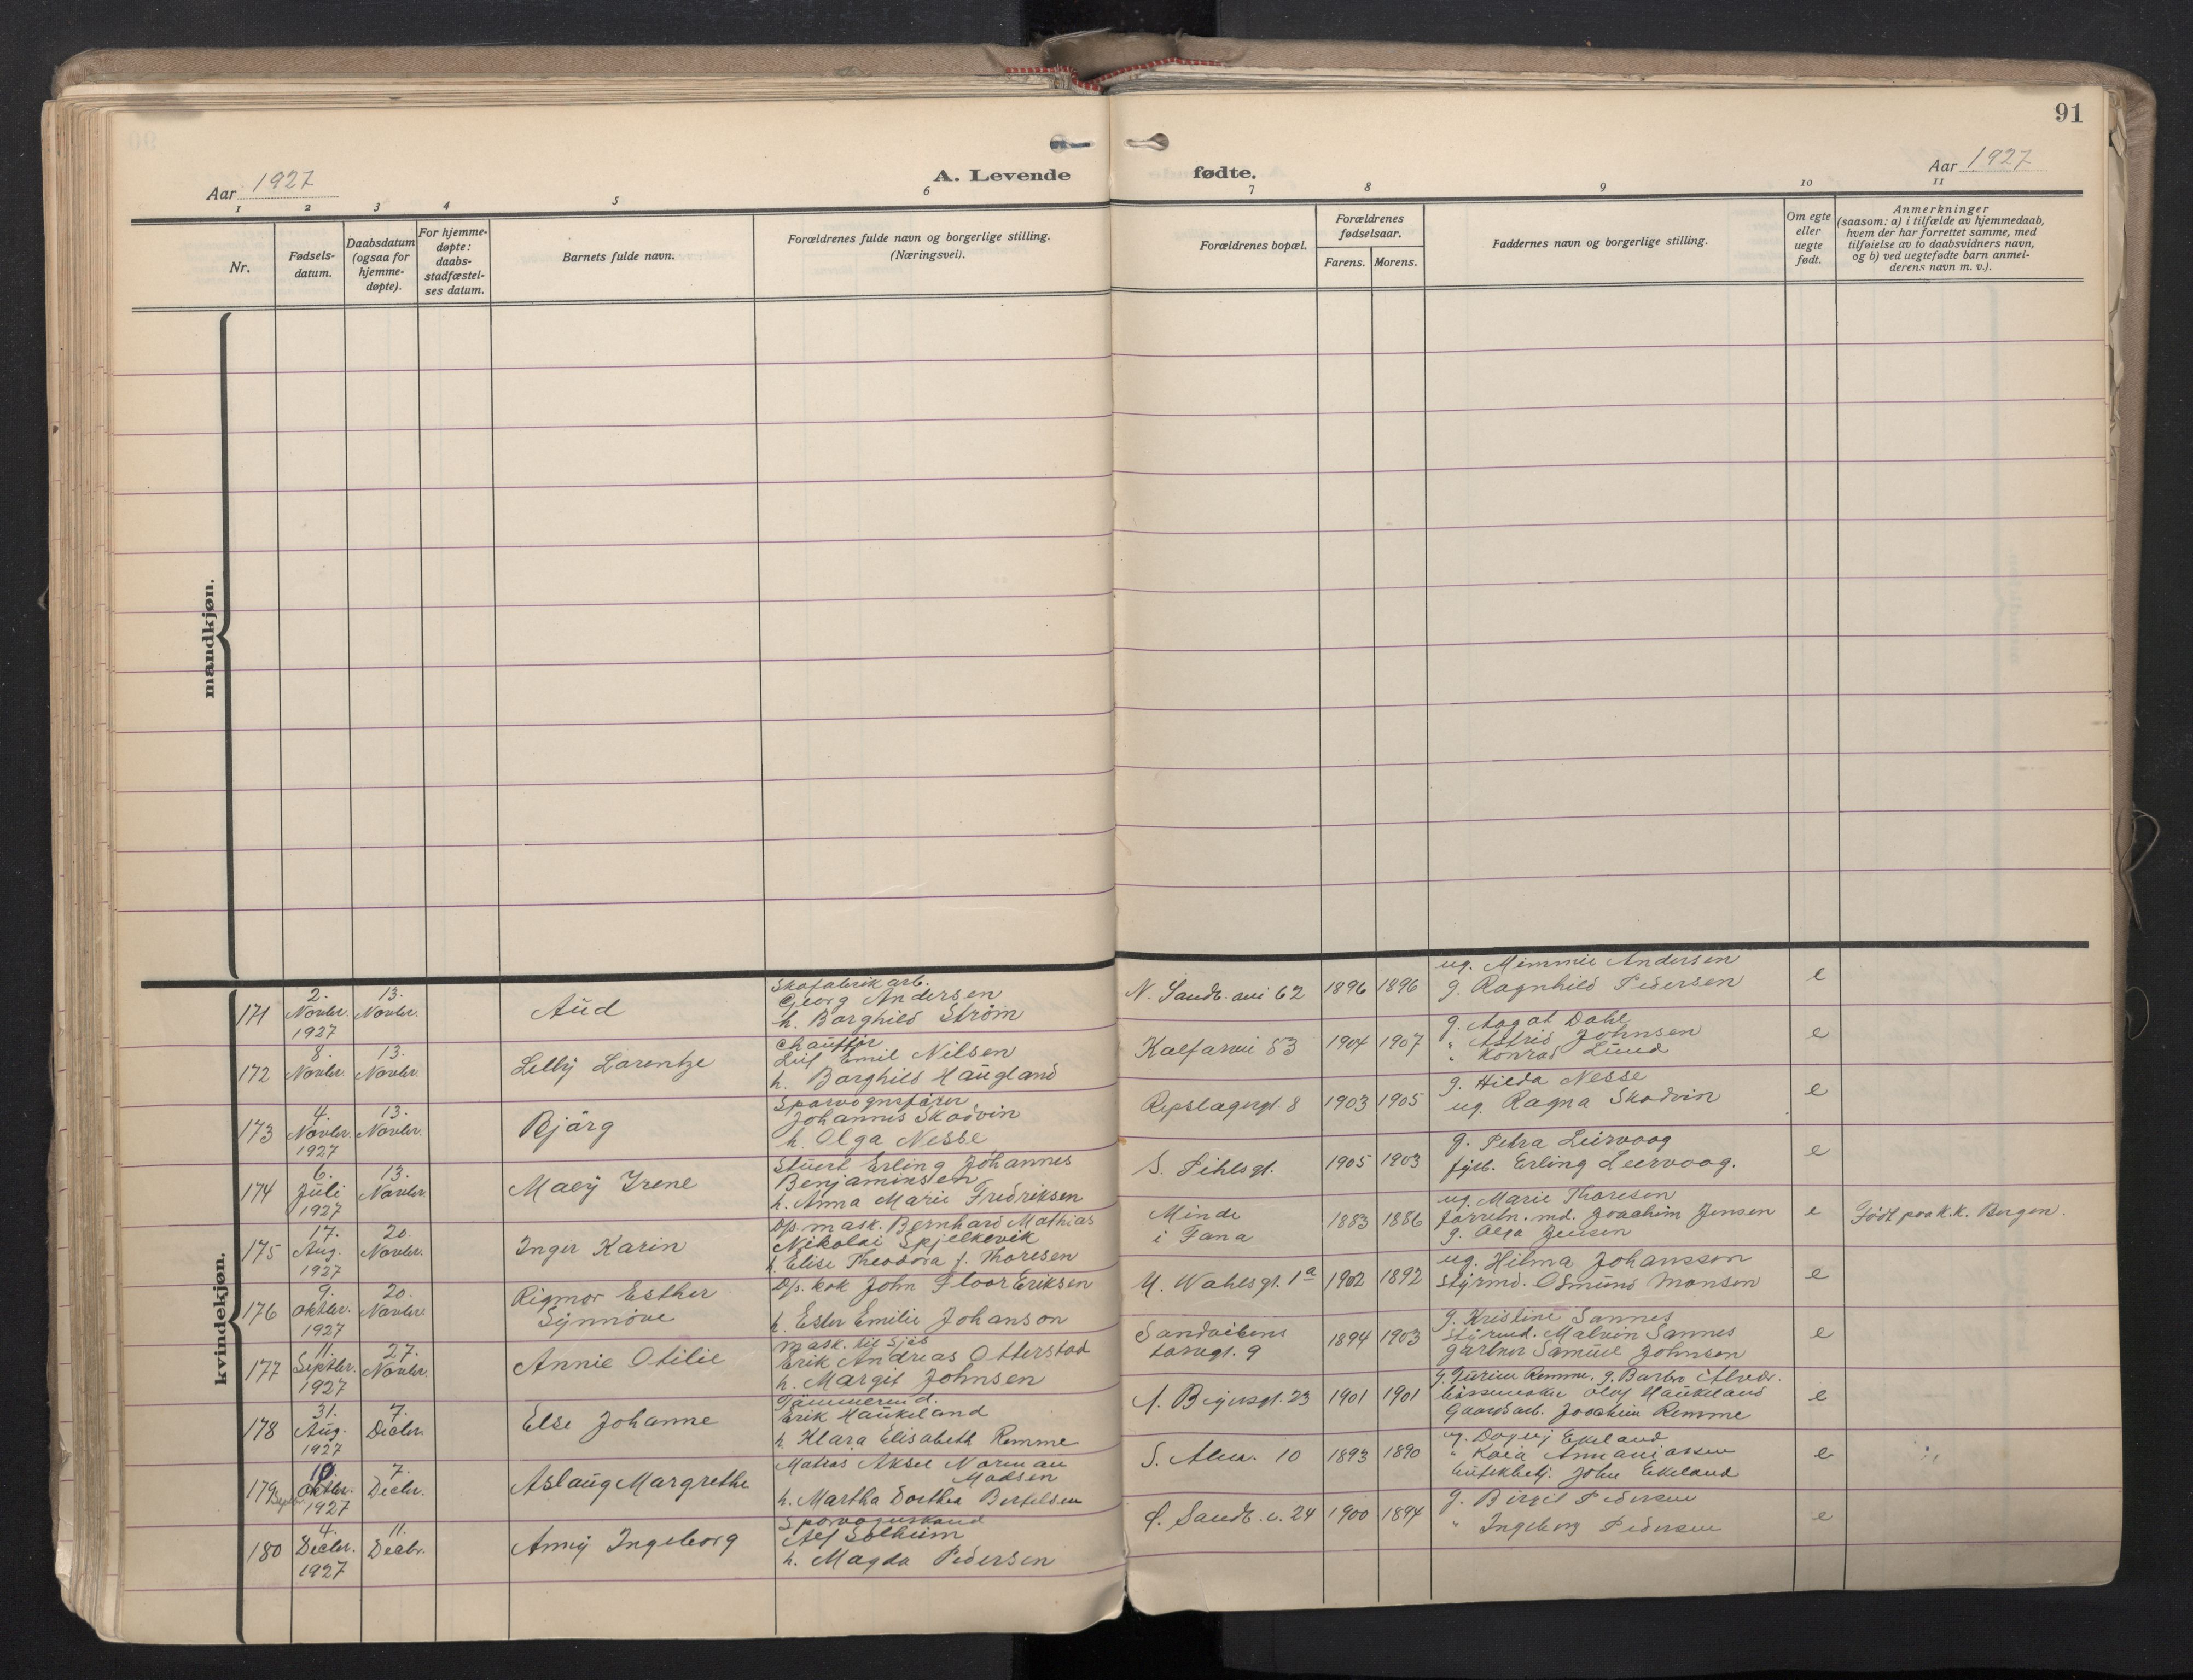 91
Aar 1927
A. Levende
fødte.
Aar 1927
1 2 3 4 5 6 7 8 9 10 11
Nr.
Fødsels-
datum.
Daabsdatum
(ogsaa for
hjemme-
døpte).
For hjemme-
døpte:
daabs-
stadfæstel-
ses datum.
Barnets fulde navn.
Forældrenes fulde navn og borgerlige stilling.
(Næringsvei).
Forældrenes bopæl.
Forældrenes
fødselsaar.
Farens. Morens.
Faddernes navn og borgerlige stilling.
Om egte
eller
uegte
født.
Anmerkninger
(saasom: a) i tilfælde av hjemmedaab,
hvem der har forrettet samme, med
tilføielse av to daabsvidners navn,
og b) ved uegtefødte barn anmel-
derens navn m. v.).
mandkjøn.
kvindekjøn.
171
2.
Novbr.
1927
13.
Novbr.
Aud
Skofabrikarb.
Georg Andersen
h. Borghild Strøm
N. Sandv. vei 62
1896 1896
ug. Mimmie Andersen
g. Ragnhild Pedersen
e
172
8.
Novbr.
13.
Novbr.
Lelly Lorentze
Chauffør
Leif Emil Nilsen
h. Borghild Haugland
Kalfarvei 53
1904 1907
g. Aagot Dahl
" Astrid Johnsen
" Konrad Lund
e
173
4.
Novbr.
1927
13.
Novbr.
Bjørg
Sporvognsfører
Johannes Skodvin
h. Olga Nesse
Repslagergt. 8
1903 1905
g. Hilda Nesse
ug. Ragna Skodvin
e
174
6.
Juli
1927
13.
Novbr.
Maey Irene
Stuert Erling Johannes
Benjaminsen
h. Anna Marie Fredriksen
S. Pihlsgt.
1905 1903
g. Petra Leirvoog
fyrb. Erling Leervoog.
e
175
17.
Aug.
1927
20.
Novbr.
Inger Karin
D/s. mask. Bernhard Mathias
Nikolai Spjelkevik
h. Elise Theodora f. Thoresen
Minde
i Fana
1883 1886
ug. Marie Thoresen
forretn. md. Joachim Jensen
g. Olga Jensen
e
Født paa K.K. Bergen.
176
9.
Oktbr.
1927
20.
Novbr.
Rigmor Esther
Synnøve
D/s. kok John Floor Eriksen
h. Ester Emilie Johanson
N. Wahlsgt. 1a
1902 1892
ug. Hilma Johansson
Styrmd. Osmund Monsen
e
177
11.
Septbr.
1927
27.
Novbr.
Annie Otilie
mask. til sjøs
Erik Andreas Otterstad
h. Margit Johnsen
Sandvikens
torvgt. 9
1894 1903
g. Kristine Sannes
Styrmd. Malvin Sannes
gartner Samuel Johnsen
e
178
31.
Aug.
1927
7.
Decbr.
Else Johanne
Tømmermd.
Erik Haukeland
h. Klara Elisabeth Remme
23
1901 1901
Remme. g. Barbro
Olaf Haukeland
Gaardsarb. Joachim Remme
e
179
10
Oktbr.
Septbr.
1927
7.
Decbr.
Aslaug Margrethe
Matros Aksel Norman
Madsen
h. Martha Dorthea Bertelsen
S. Alm. 10
1893 1890
ug. Dagny Ekeland
" Kaia Amaniassen
butikbetj. John Ekeland
e
180
4.
Decbr.
1927
11.
Decbr.
Anny Ingeborg
Sporvognskond
Alf Solheim
h. Magda Pedersen
Sandv. v. 24
1900 1894
g. Birgit Pedersen
" Ingeborg Pedersen
e